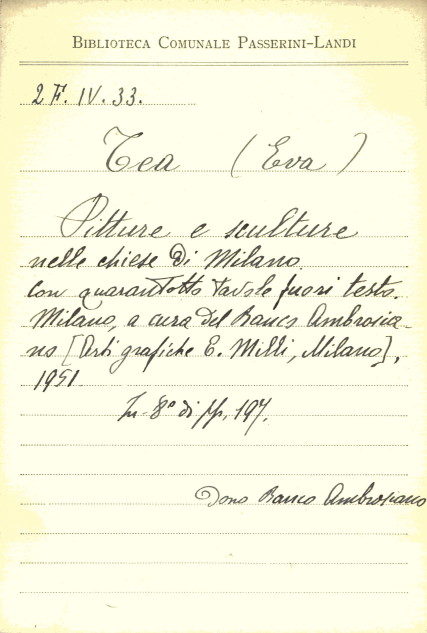 BIBLIOTECA COMUNALE PASSERINI-LANDI
2 F. IV. 33.
Tea (Eva)
Pitture e sculture
nelle chiese di Milano
con quarantotto tavole fuori testo.
Milano, a cura del Banco Ambrosia-
no [Arti grafiche E. Milli, Milano],
1951
In-8° di pp. 197.
Dono Banco Ambrosiano